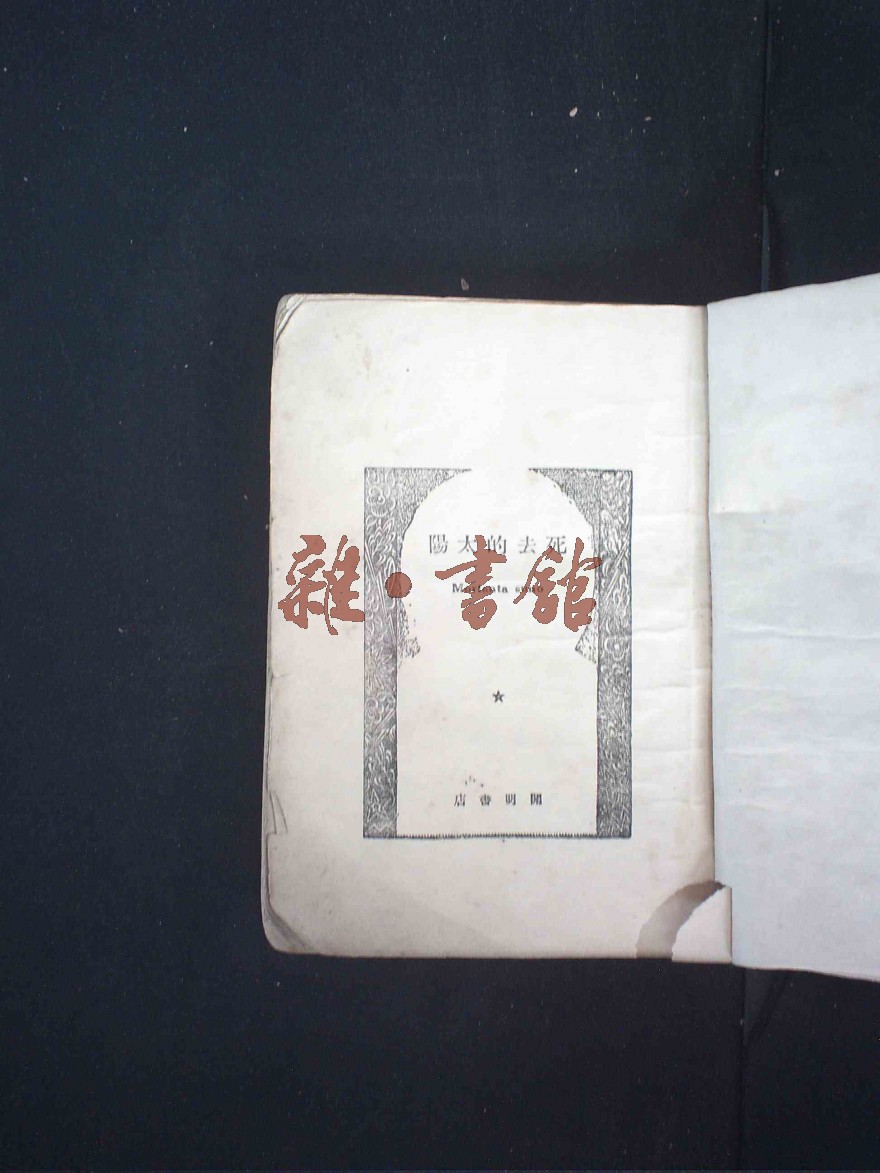 死去的太陽
雜·書館
開明書店